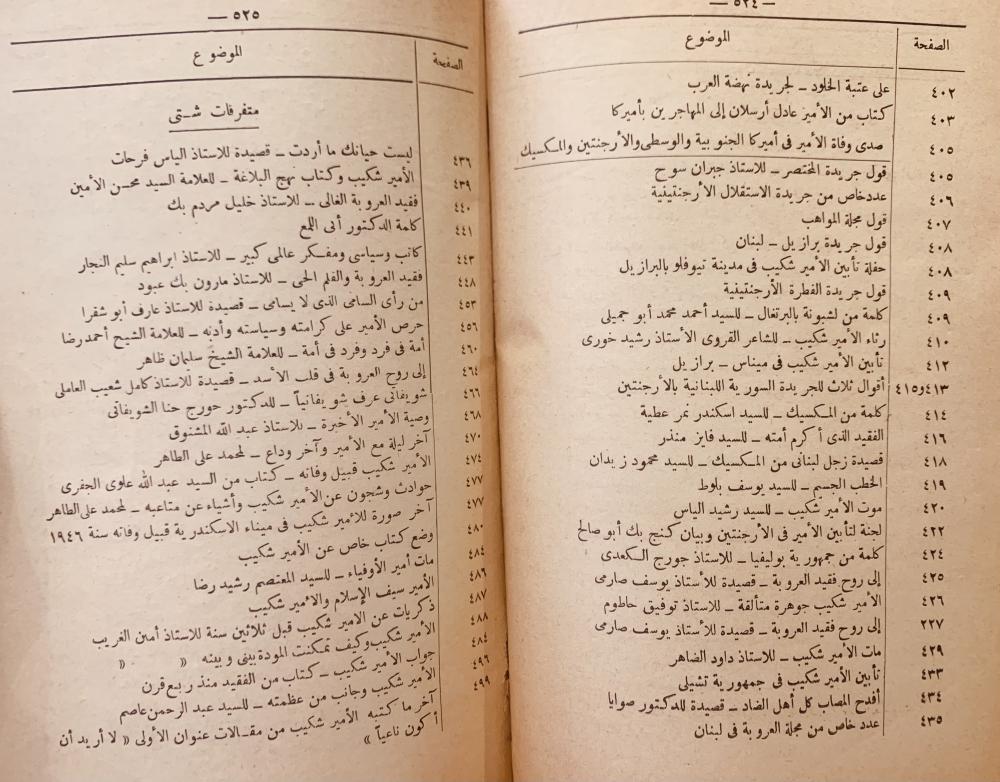 — ٥٢٤ —
الصفحة الموضوع
٤٠٢ على عتبة الخلود — لجريدة نهضة العرب
٤٠٣ كتاب من الأمير عادل أرسلان إلى المهاجرين بأميركا
٤٠٥ صدى وفاة الأمير فى أميركا الجنوبية والوسطى والأرجنتين والمكسيك
٤٠٥ قول جريدة المختصر — للاستاذ جبران سوح
٤٠٦ عدد خاص من جريدة الاستقلال الأرجنتينية
٤٠٧ قول مجلة المواهب
٤٠٨ قول جريدة برازيل — لبنان
٤٠٨ حفلة تأبين الأمير شكيب فى مدينة تيوفلو بالبرازيل
٤٠٩ قول جريدة الفطرة الأرجنتينية
٤٠٩ كلمة من لشبونة بالبرتغال — للسيد أحمد محمد أبو جميلى
٤١٠ رثاء الأمير شكيب — للشاعر القروى الأستاذ رشيد خورى
٤١٢ تأبين الأمير شكيب فى ميناس — برازيل
٤١٣و٤١٥ أقوال ثلاث للجريدة السورية اللبنانية بالأرجنتين
٤١٤ كلمة من المكسيك — للسيد اسكندر نمر عطية
٤١٦ الفقيد الذى أكرم أمته — للسيد فايز منذر
٤١٨ قصيدة زجل لبنانى من المكسيك — للسيد محمود زيدان
٤١٩ الخطب الجسيم — للسيد يوسف بلوط
٤٢٠ موت الأمير شكيب — للسيد رشيد الياس
٤٢٢ لجنة لتأبين الأمير فى الأرجنتين وبيان كنج بك أبو صالح
٤٢٤ كلمة من جمهورية بوليفيا — للاستاذ جورج الكعدى
٤٢٥ إلى روح فقيد العروبة — قصيدة للأستاذ يوسف صارمى
٤٢٦ الأمير شكيب جوهرة متألقة — للاستاذ توفيق حاطوم
٢٢٧ إلى روح فقيد العروبة — قصيدة للأستاذ يوسف صارمى
٤٢٩ مات الأمير شكيب — للاستاذ داود الضاهر
٤٣٣ تأبين الأمير شكيب فى جمهورية تشيلى
٤٣٤ أفدح المصاب كل أهل الضاد — قصيدة للدكتور صوايا
٤٣٥ عدد خاص من مجلة العروبة فى لبنان
٥٢٥ —
الصفحة الموضوع
متفرقات شتى
٤٣٦ ليست حياتك ما أردت — قصيدة للاستاذ الياس فرحات
٤٣٩ الأمير شكيب وكتاب نهج البلاغة — للعلامة السيد محسن الأمين
٤٤٠ فقيد العروبة الغالى — للاستاذ خليل مردم بك
٤٤١ كلمة الدكتور أبى اللمع
٤٤٣ كاتب وسياسى ومفكر عالمى كبير — للاستاذ ابراهيم سليم النجار
٤٤٨ فقيد العروبة والقلم الحى — للاستاذ مارون بك عبود
٤٥٣ من رأى السامى الذى لا يسامى — قصيدة للاستاذ عارف أبو شقرا
٤٥٦ حرص الأمير على كرامته وسياسته وأدبه — للعلامة الشيخ أحمد رضا
٤٦٠ أمة فى فرد وفرد فى أمة — للعلامة الشيخ سليمان ظاهر
٤٦٤ إلى روح العروبة فى قلب الأسد — قصيدة للاستاذ كامل شعيب العاملى
٤٦٦ شويفاتى عرف شويفاتياً — للدكتور جورج حنا الشويفاتى
٤٦٨ وصية الأمير الأخيرة — للاستاذ عبد الله المشنوق
٤٧٠ آخر ليلة مع الأمير وآخر وداع — لمحمد على الطاهر
٤٧٤ الأمير شكيب قبيل وفاته — كتاب من السيد عبد الله علوى الجفرى
٤٧٧ حوادث وشجون عن الأمير شكيب وأشياء عن متاعبه — لمحمد على الطاهر
٤٧٧ آخر صورة للأمير شكيب فى ميناء الاسكندرية قبيل وفاته سنة ١٩٤٦
٤٨٠ وضع كتاب خاص عن الأمير شكيب
٤٨٤ مات أمير الأوفياء — للسيد المعتصم رشيد رضا
٤٨٦ الأمير سيف الإسلام والأمير شكيب
٤٨٧ ذكريات عن الأمير شكيب قبل ثلاثين سنة للاستاذ أمين الغريب
٤٨٨ الأمير شكيب وكيف تمكنت المودة بينى وبينه » »
٤٨٤ جواب الأمير شكيب — كتاب من الفقيد منذ ربع قرن
٤٩٦ الأمير شكيب وجانب من عظمته — للسيد عبد الرحمن عاصم
٤٩٩ آخر ما كتبه الأمير شكيب من مقالات عنوان الأولى « لا أريد أن
أكون ناعياً »